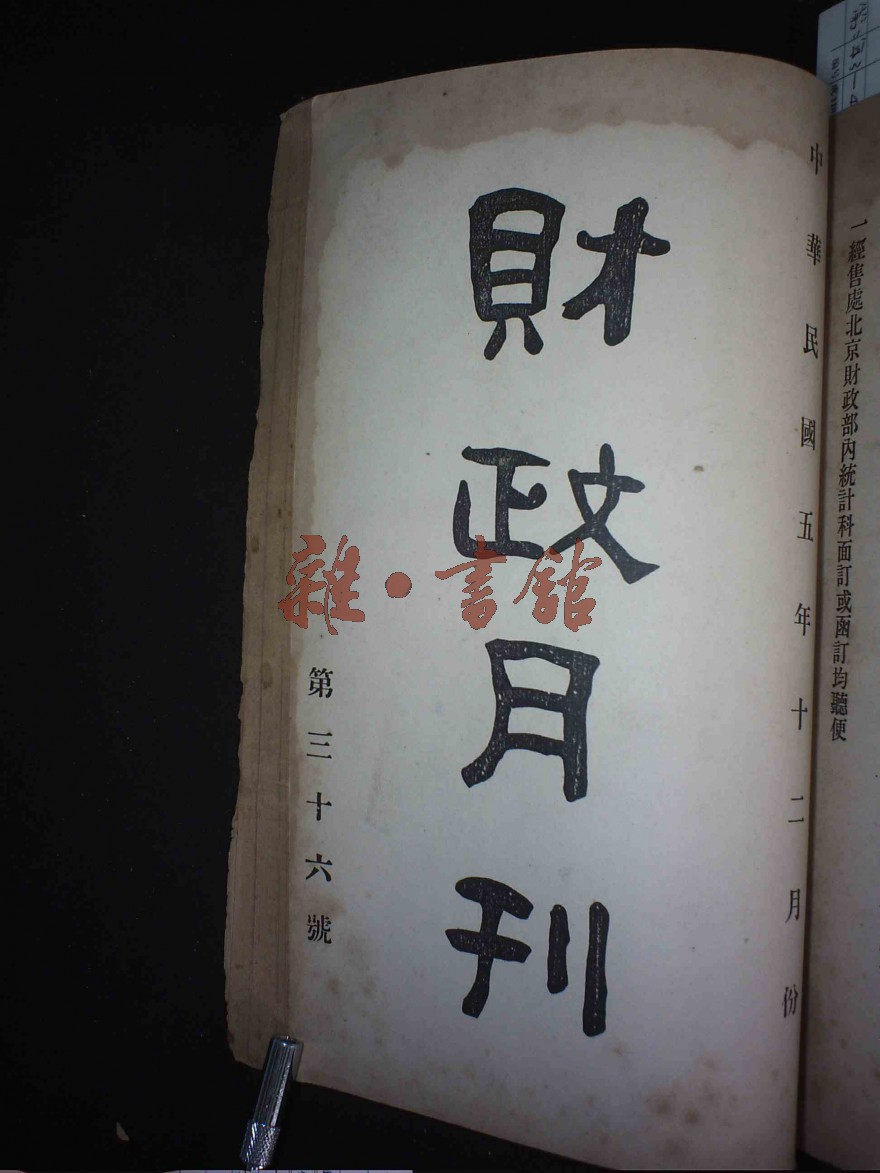 一經售處北京財政部內統計科面訂或函訂均聽便
中華民國五年十二月份
財政月刊
第三十六號
雜·書館